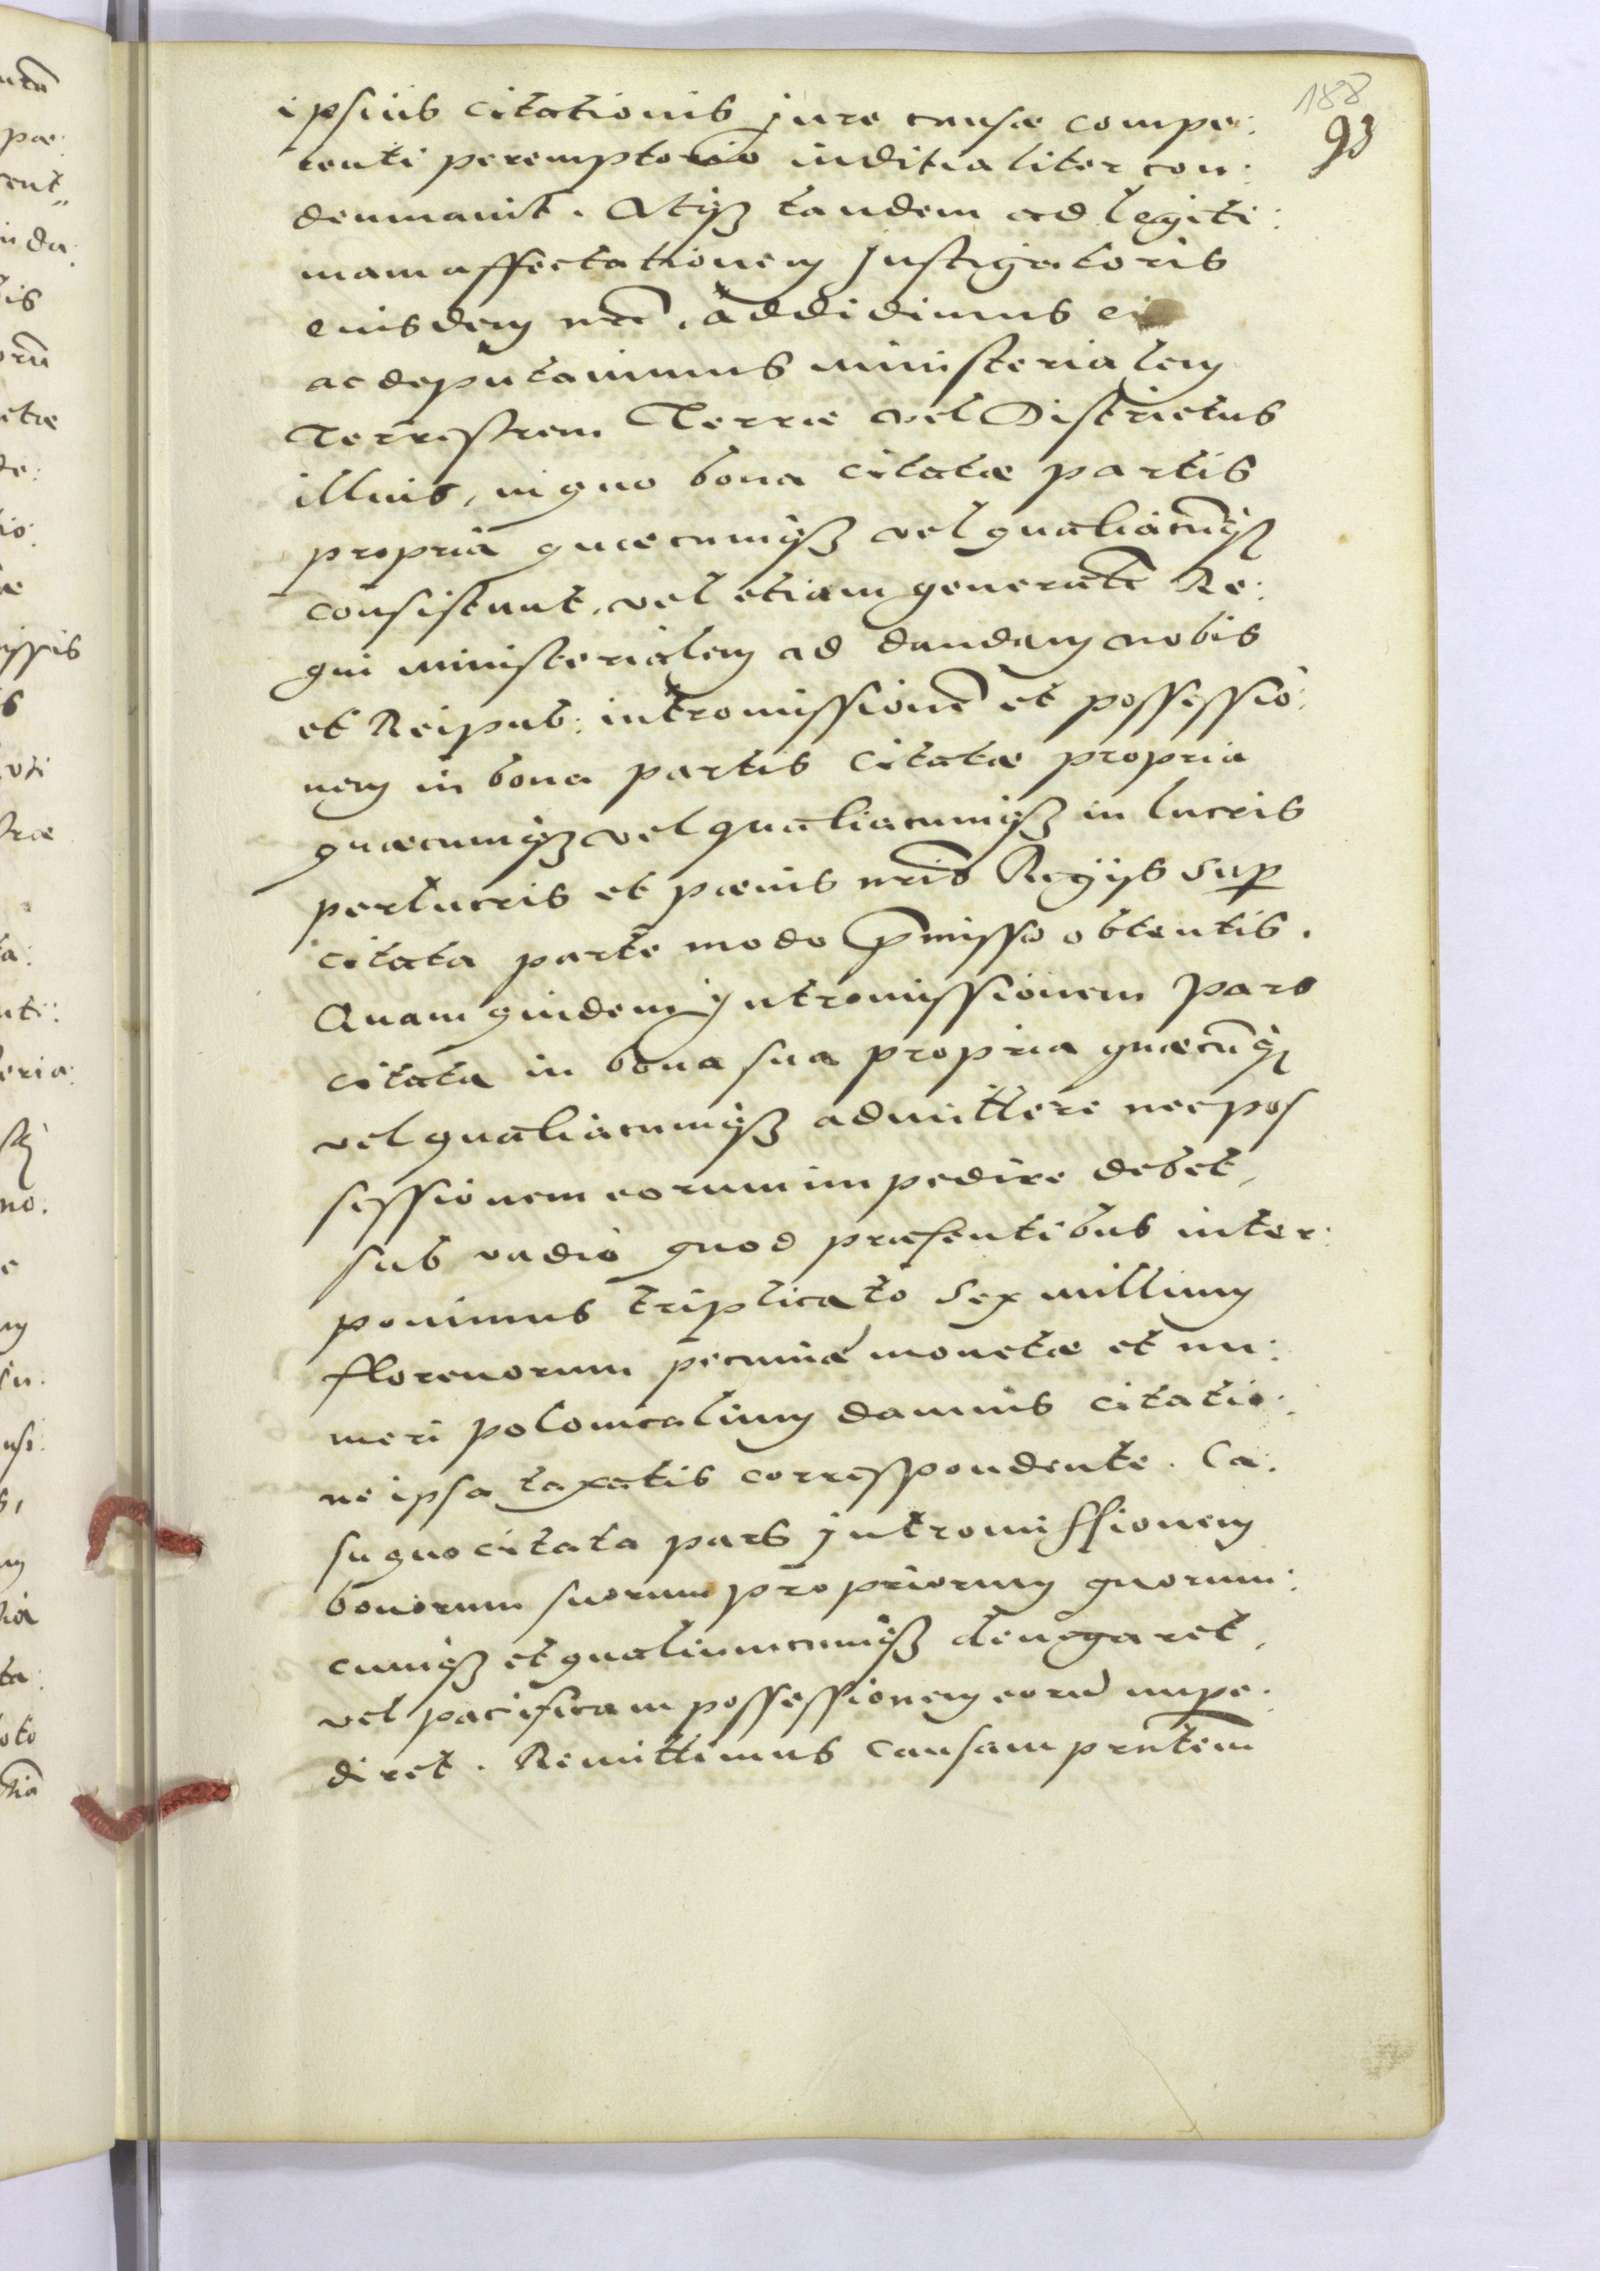 188
93
ipsius citationis jure causæ compe:
tenti peremptorio inditialiter con:
demnavit. Atq₃ tandem ad legiti:
mam affectationem Instigatoris
eiusdem nrĩ, addidimus ei
ac deputavimus ministerialem
Terrestrem Terræ vel Districtus
illius, in quo bona citatæ partis
propria quæcumq₃ vel qualiacũq₃
consistunt, vel etiam generalẽ Re:
gni ministerialem ad dandam nobis
et Reipub: intromissionẽ et possessio:
nem in bona partis citatæ propria
quæcumq₃ vel qualiacumq₃ in lucris
perlucris et pœnis nris̃ Regijs sup
citata parte modo p̃misso obtentis.
Quam quidem Intromissionem pars
citata in bona sua propria quæcũq₃
vel qualiacumq₃ admittere nec pos
sessionem eorum impedire debet,
sub vadio quod præsentibus inter:
ponimus triplicato sex millium
florenorum pecuniæ monetæ et nu:
meri polonicalium damnis citatio:
ne ipsa taxatis correspondente. Ca:
su quo citata pars Intromissionem
bonorum suorum propriorum quorum:
cumq₃ et qualiumcumq₃ denegaret,
vel pacificam possessionem eorũ impe:
diret. Remittimus causam prñtem